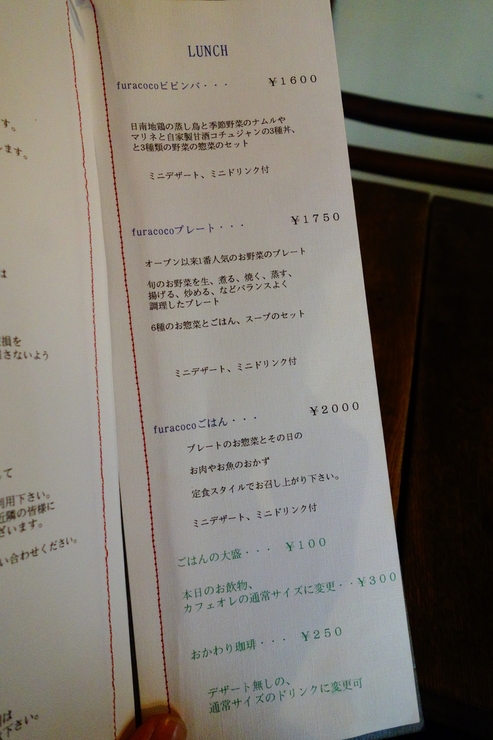 す。
います。
は
破損を
引さないよう
して
利用下さい。
近隣の皆様に
ざいます。
い合わせください。
は
下さい。
LUNCH
furacocoビビンバ・・・ ¥1600
日南地鶏の蒸し鳥と季節野菜のナムルや
マリネと自家製甘酒コチュジャンの3種丼、
と3種類の野菜の惣菜のセット
ミニデザート、ミニドリンク付
furacocoプレート・・・ ¥1750
オープン以来1番人気のお野菜のプレート
旬のお野菜を生、煮る、焼く、蒸す、
揚げる、炒める、などバランスよく
調理したプレート
6種のお惣菜とごはん、スープのセット
ミニデザート、ミニドリンク付
furacocoごはん・・・ ¥2000
プレートのお惣菜とその日の
お肉やお魚のおかず
定食スタイルでお召し上がり下さい。
ミニデザート、ミニドリンク付
ごはんの大盛・・・ ¥100
本日のお飲物、
カフェオレの通常サイズに変更・・¥300
おかわり珈琲・・・ ¥250
デザート無しの、
通常サイズのドリンクに変更可